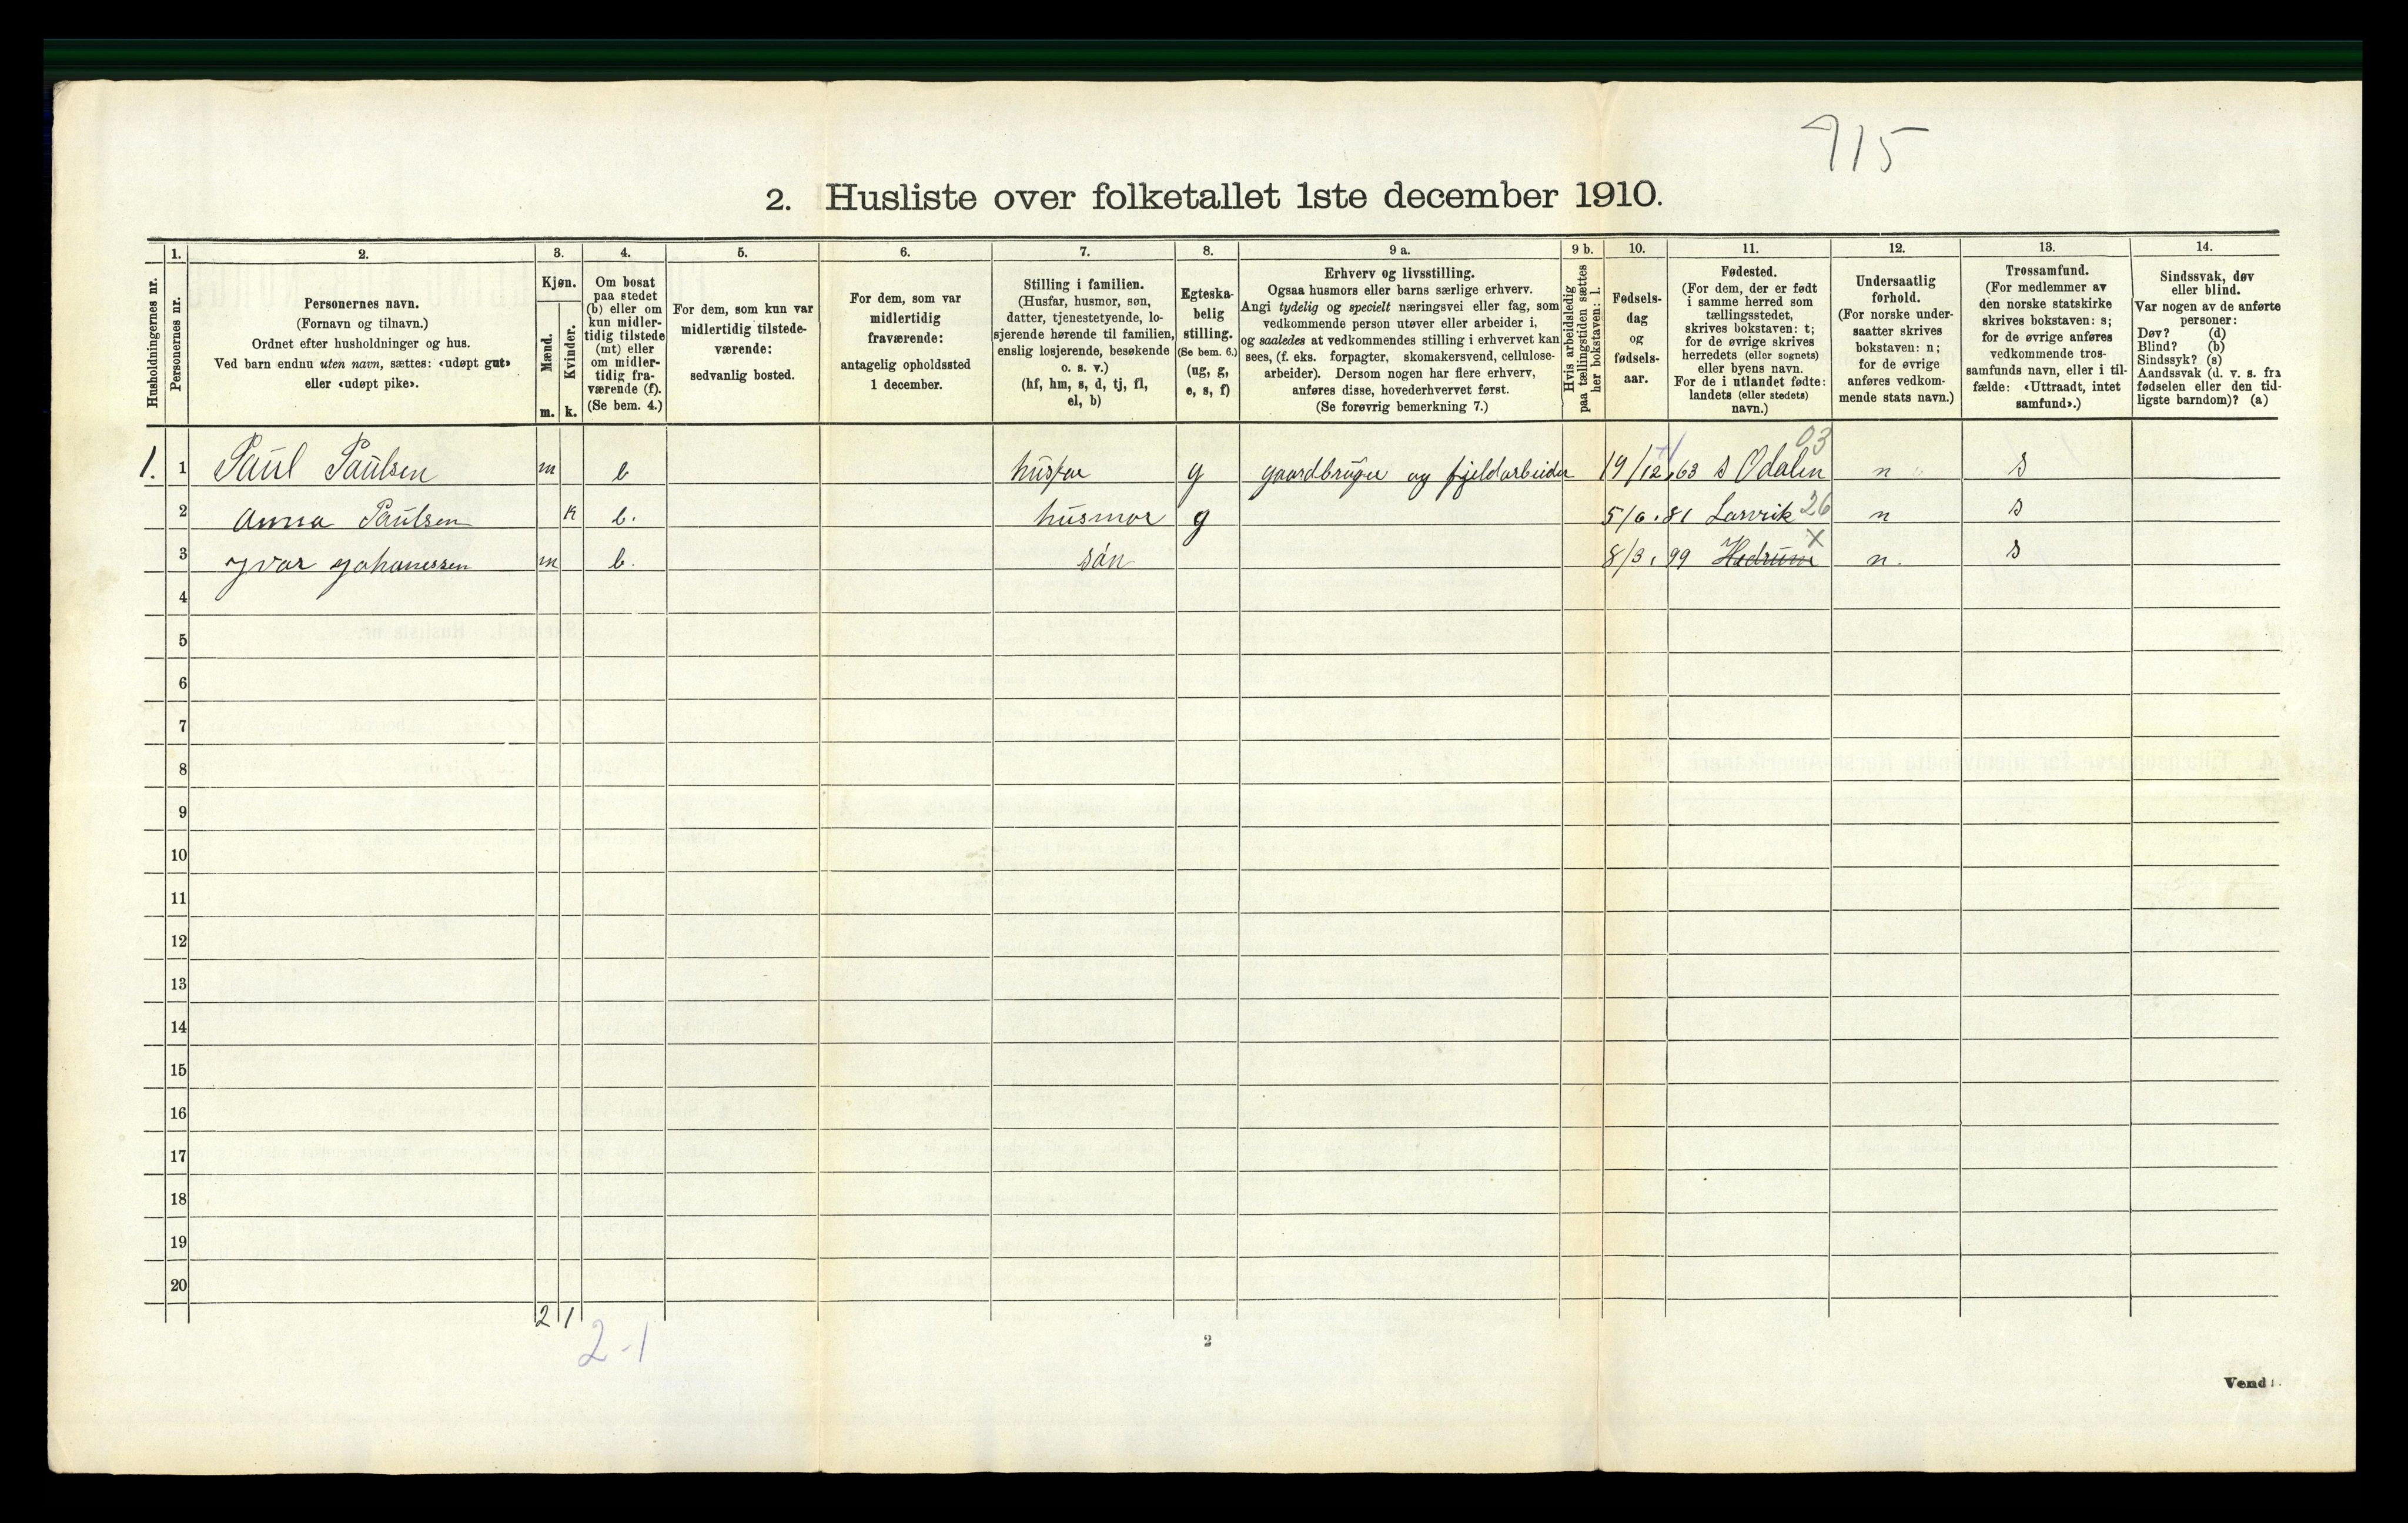 915
2. Husliste over folketallet 1ste december 1910.
Husholdningernes nr.
1.
Personernes nr.
2.
Personernes navn.
(Fornavn og tilnavn.)
Ordnet efter husholdninger og hus.
Ved barn endnu uten navn, sættes: «udøpt gut»
eller «udøpt pike».
3.
Kjøn.
Mænd.
m.
Kvinder.
k.
4.
Om bosat
paa stedet
(b) eller om
kun midler-
tidig tilstede
(mt) eller
om midler-
tidig fra-
værende (f).
(Se bem. 4.)
5.
For dem, som kun var
midlertidig tilstede-
værende:
sedvanlig bosted.
6.
For dem, som var
midlertidig
fraværende:
antagelig opholdssted
1 december.
7.
Stilling i familien.
(Husfar, husmor, søn,
datter, tjenestetyende, lo-
sjerende hørende til familien,
enslig losjerende, besøkende
o. s. v.)
(hf, hm, s, d, tj, fl,
el, b)
8.
Egteska-
belig
stilling.
(Se bem. 6.)
(ug, g,
e, s, f)
9 a.
Erhverv og livsstilling.
Ogsaa husmors eller barns særlige erhverv.
Angi tydelig og specielt næringsvei eller fag, som
vedkommende person utøver eller arbeider i,
og saaledes at vedkommendes stilling i erhvervet kan
sees, (f. eks. forpagter, skomakersvend, cellulose-
arbeider). Dersom nogen har flere erhverv,
anføres disse, hovederhvervet først.
(Se forøvrig bemerkning 7.)
9 b.
Hvis arbeidsledig
paa tællingstiden sættes
her bokstaven: l.
10.
Fødsels-
dag
og
fødsels-
aar.
11.
Fødested.
(For dem, der er født
i samme herred som
tællingsstedet,
skrives bokstaven: t;
for de øvrige skrives
herredets (eller sognets)
eller byens navn.
For de i utlandet fødte:
landets (eller stedets)
navn.)
12.
Undersaatlig
forhold.
(For norske under-
saatter skrives
bokstaven: n;
for de øvrige
anføres vedkom-
mende stats navn.)
13.
Trossamfund.
(For medlemmer av
den norske statskirke
skrives bokstaven: s;
for de øvrige anføres
vedkommende tros-
samfunds navn, eller i til-
fælde: «Uttraadt, intet
samfund».)
14.
Sindssvak, døv
eller blind.
Var nogen av de anførte
personer:
Døv? (d)
Blind? (b)
Sindssyk? (s)
Aandssvak (d. v. s. fra
fødselen eller den tid-
ligste barndom)? (a)
03
1. 1 Paul Paulsen m b husfar g gaardbruger og fjeldarbeider 19/12.63 s Odalen n s
2 Anna Paulsen k b. husmor g 5/6.81 Larvik 26 n s
x
3 Yvar Johanessen m b. sön 8/3.99 Hedrum n. s
4
5
6
7
8
9
10
11
12
13
14
15
16
17
18
19
20
2 1
2-1
2
Vend!